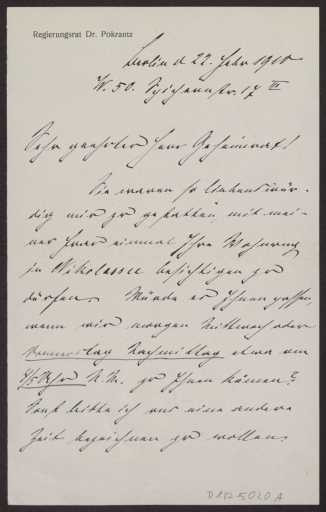 Regierungsrat Dr. Pokrantz
Berlin d 22. Febr 1910
W. 50. Spichernstr. 17 III
Sehr geehrter Herr Geheimrat!
Sie waren so liebenswür-
dig mir zu gestatten, mit mei-
ner Frau einmal Ihre Wohnung
in Nikolassee besichtigen zu
dürfen. Würde es Ihnen passen,
wenn wir morgen Mittwoch oder
Donnerstag Nachmittag etwa um
4/5 Uhr N.M. zu Ihnen kämen?
Sonst bitte ich uns eine andere
Zeit bezeichnen zu wollen.